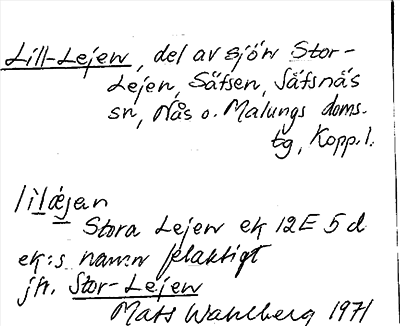 Lill-Lejen, del av sjön Stor-
Lejen, Säfsen, Säfsnäs
sn, Nås o. Malungs doms.
tg, Kopp. l.
lìlǽjan
Stora Lejen ek 12E 5d
ek:s namn felaktigt
jfr. Stor-Lejen
Mats Wahlberg 1971